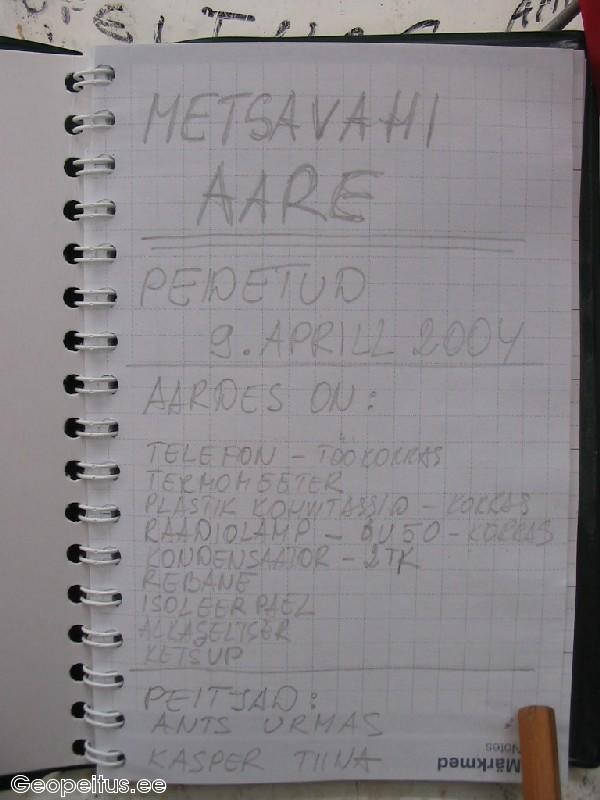 METSAVAHI
AARE
PEIDETUD
9. APRILL 2004
AARDES ON:
TELEFON - TÖÖKORRAS
TERMOMEETER
PLASTIK KOHVITASSID - KORRAS
RAADIOLAMP - 6U5G - KORRAS
KONDENSAATOR - 2TK
REBANE
ISOLEERPAEL
ALKASELTSER
KETŠUP
PEITJAD:
ANTS URMAS
KASPER TIINA
Märkmed
Notes
Geopeitus.ee